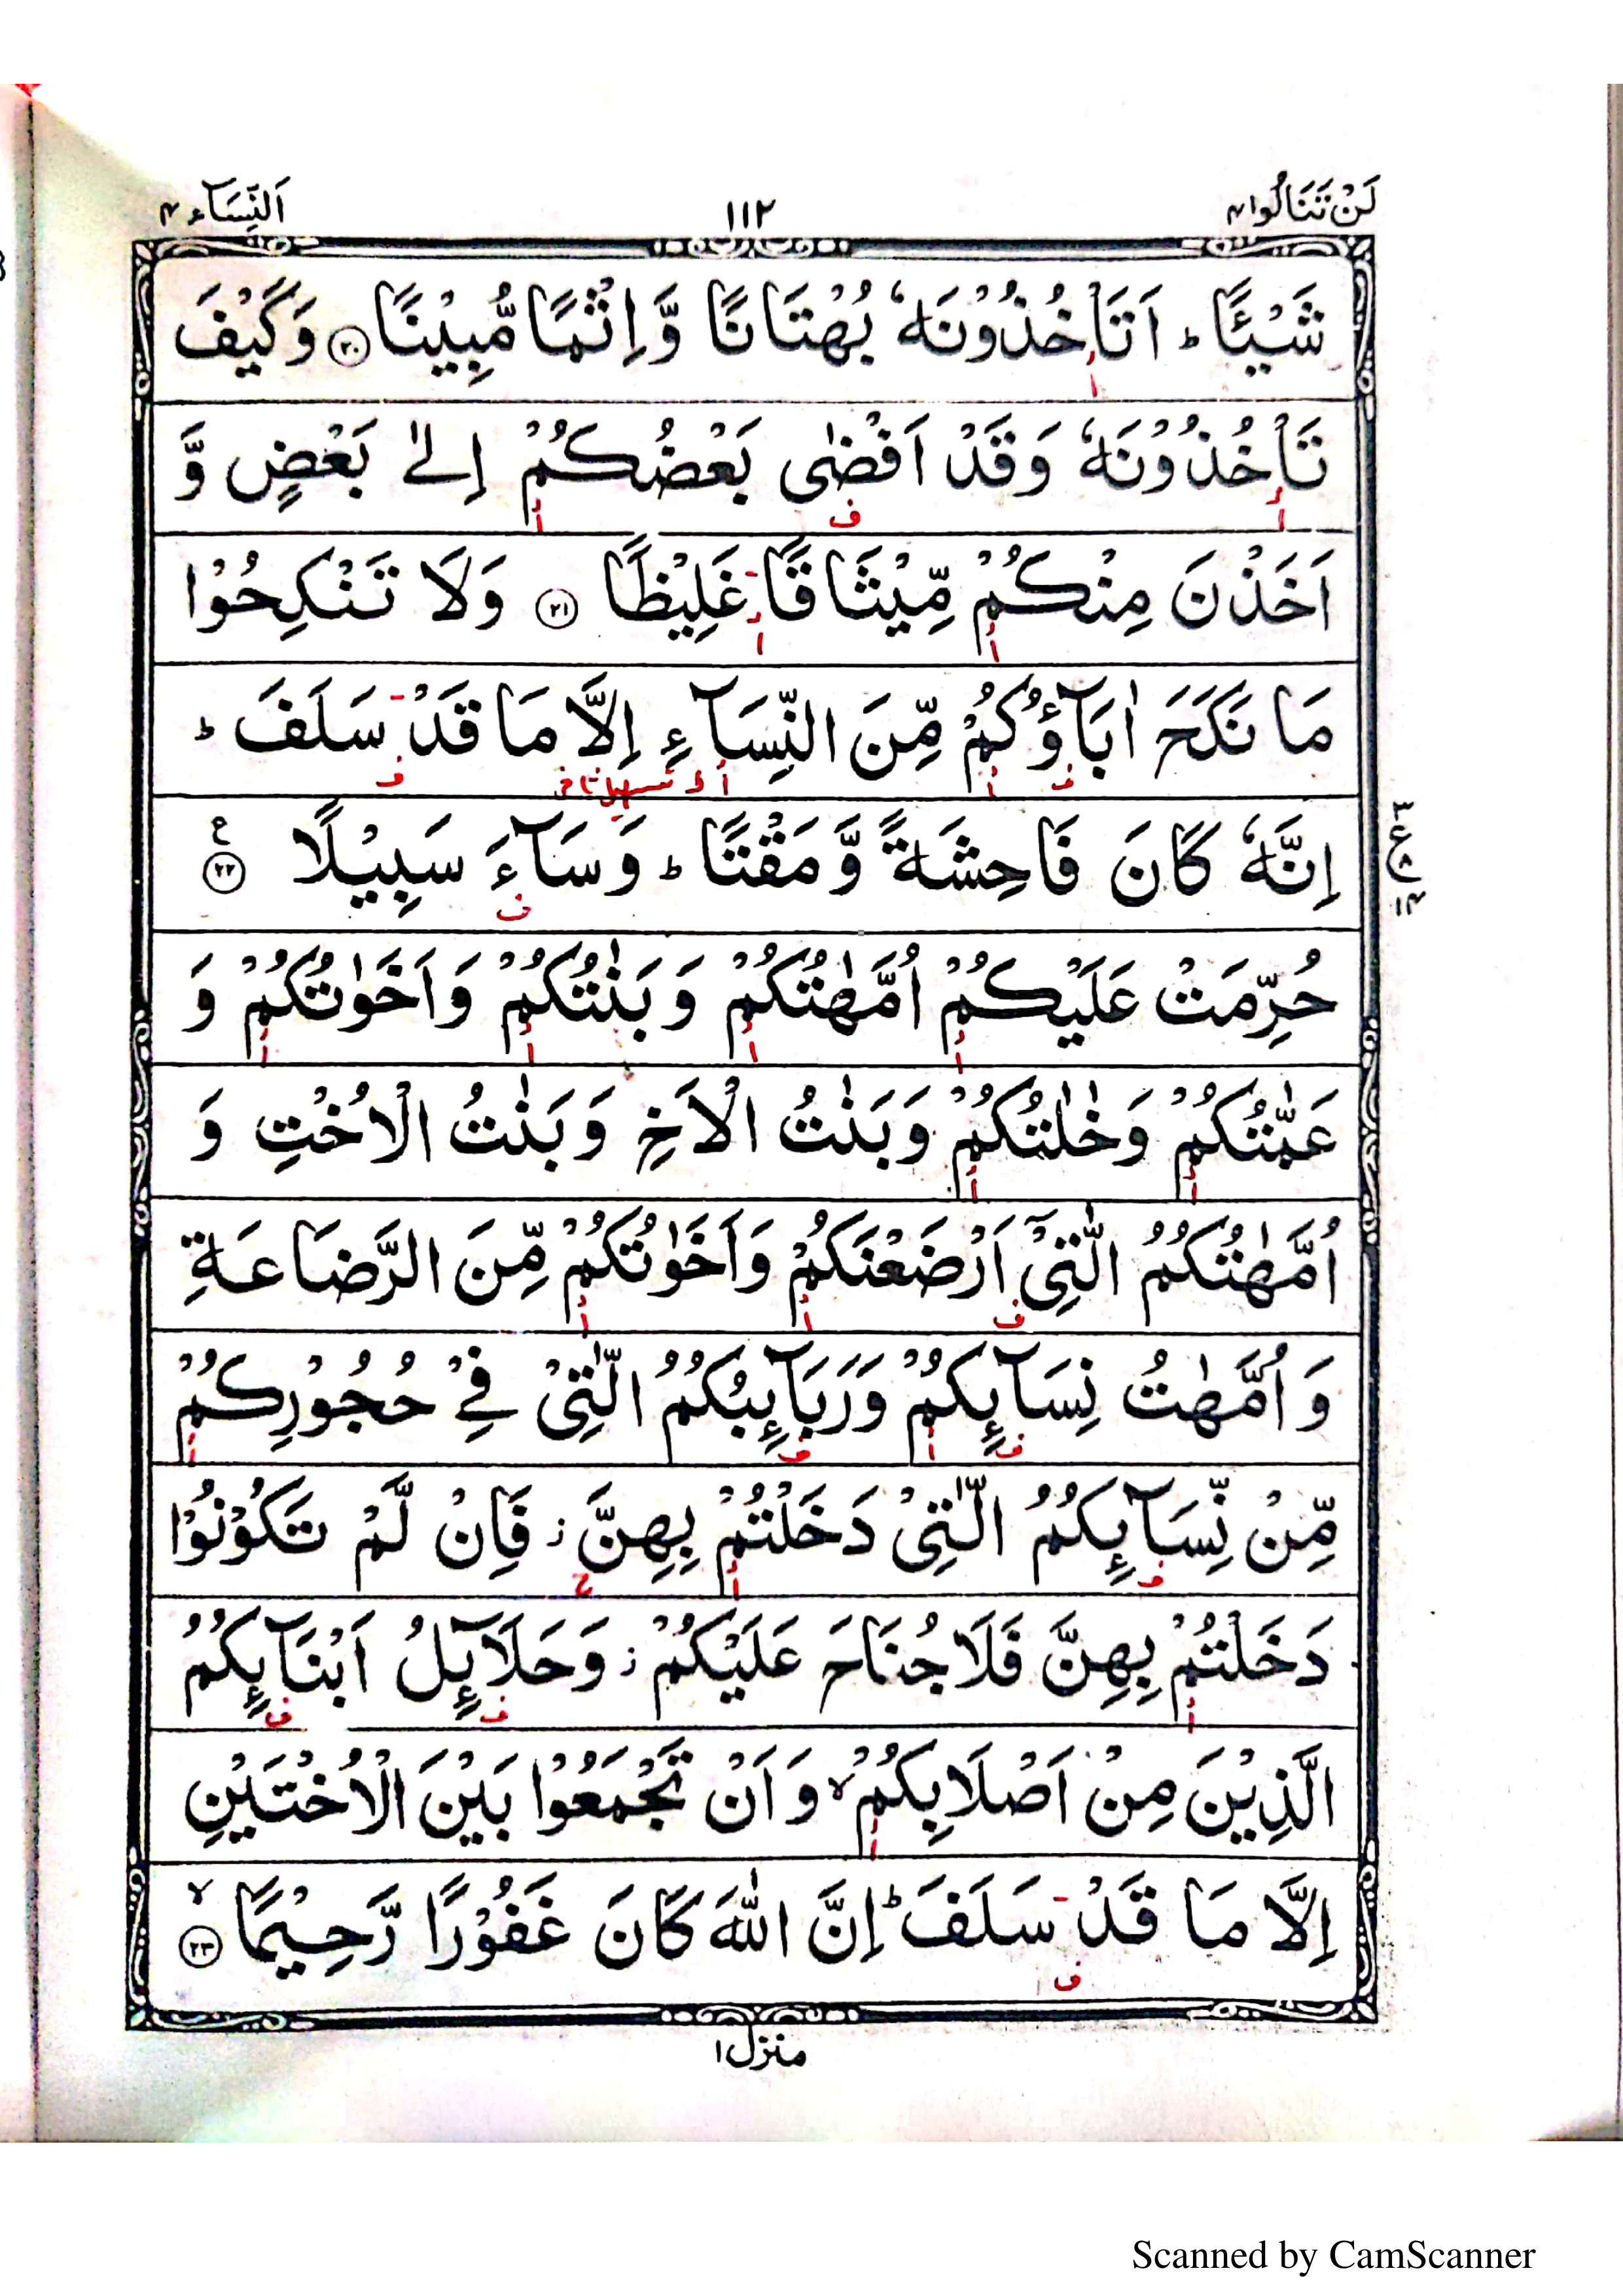 لَنْ تَنَالُوا ٤
١١٢
اَلنِّسَآء ٤
شَيْـًٔا ؕ اَتَاْخُذُوْنَهٗ بُهْتَانًا وَّ اِثْمًا مُّبِيْنًا ﴿۲۰﴾ وَكَيْفَ
تَاْخُذُوْنَهٗ وَقَدْ اَفْضٰى بَعْضُكُمْ اِلٰى بَعْضٍ وَّ
اَخَذْنَ مِنْكُمْ مِّيْثَاقًا غَلِيْظًا ﴿۲۱﴾ وَلَا تَنْكِحُوْا
مَا نَكَحَ اٰبَآؤُكُمْ مِّنَ النِّسَآءِ اِلَّا مَا قَدْ سَلَفَ ؕ
اِنَّهٗ كَانَ فَاحِشَةً وَّ مَقْتًا ؕ وَسَآءَ سَبِيْلًا ﴿۲۲﴾ ع
حُرِّمَتْ عَلَيْكُمْ اُمَّهٰتُكُمْ وَ بَنٰتُكُمْ وَاَخَوٰتُكُمْ وَ
عَمّٰتُكُمْ وَخٰلٰتُكُمْ وَبَنٰتُ الْاَخِ وَ بَنٰتُ الْاُخْتِ وَ
اُمَّهٰتُكُمُ الّٰتِيْۤ اَرْضَعْنَكُمْ وَاَخَوٰتُكُمْ مِّنَ الرَّضَاعَةِ
وَ اُمَّهٰتُ نِسَآئِكُمْ وَرَبَآئِبُكُمُ الّٰتِيْ فِيْ حُجُوْرِكُمْ
مِّنْ نِّسَآئِكُمُ الّٰتِيْ دَخَلْتُمْ بِهِنَّ ز فَاِنْ لَّمْ تَكُوْنُوْا
دَخَلْتُمْ بِهِنَّ فَلَا جُنَاحَ عَلَيْكُمْ ز وَحَلَآئِلُ اَبْنَآئِكُمُ
الَّذِيْنَ مِنْ اَصْلَابِكُمْ ۙ وَ اَنْ تَجْمَعُوْا بَيْنَ الْاُخْتَيْنِ
اِلَّا مَا قَدْ سَلَفَ ؕ اِنَّ اللّٰهَ كَانَ غَفُوْرًا رَّحِيْمًا ۙ ﴿۲۳﴾
منزل ١
Scanned by CamScanner